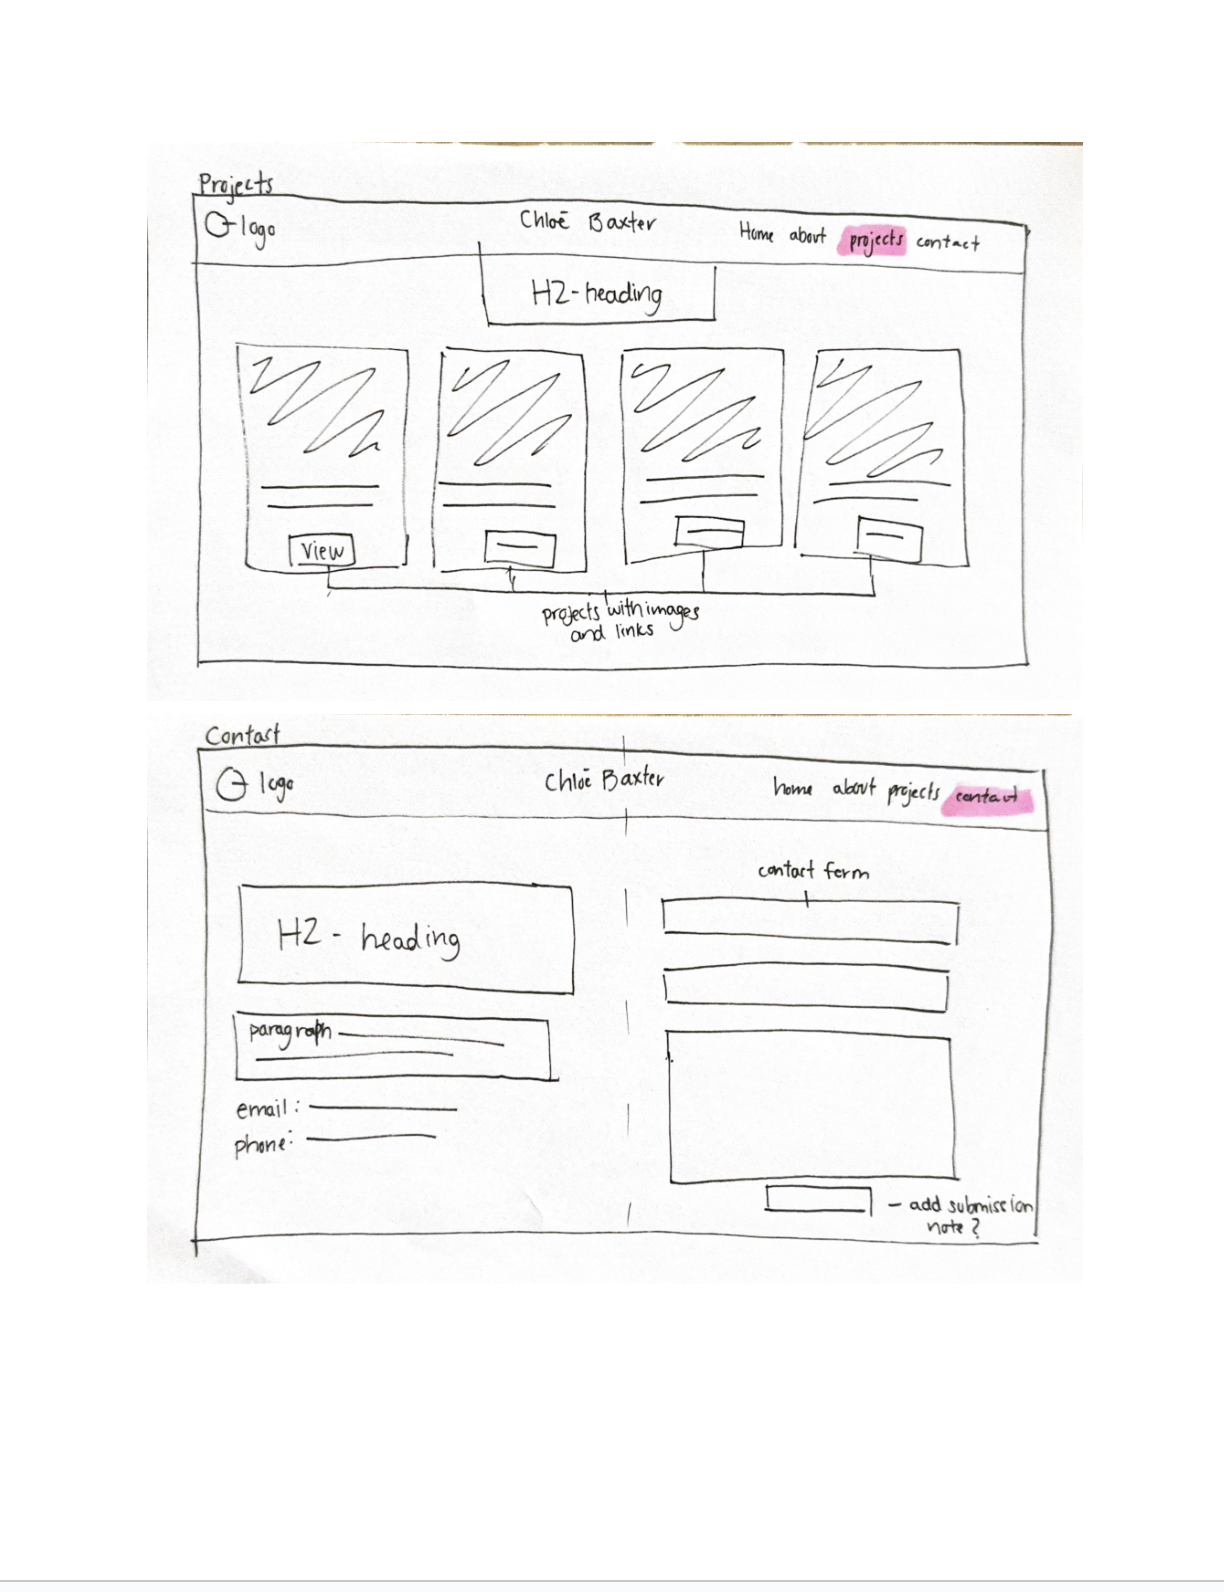 Projects
logo
Chloē Baxter
Home about projects contact
H2-heading
View
projects with images
and links
Contact
logo
Chloē Baxter
home about projects contact
contact form
H2 - heading
paragraph
email:
phone:
- add submission
note?